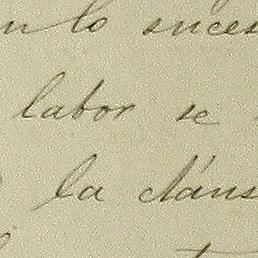 lo suces
labor se
la cláus